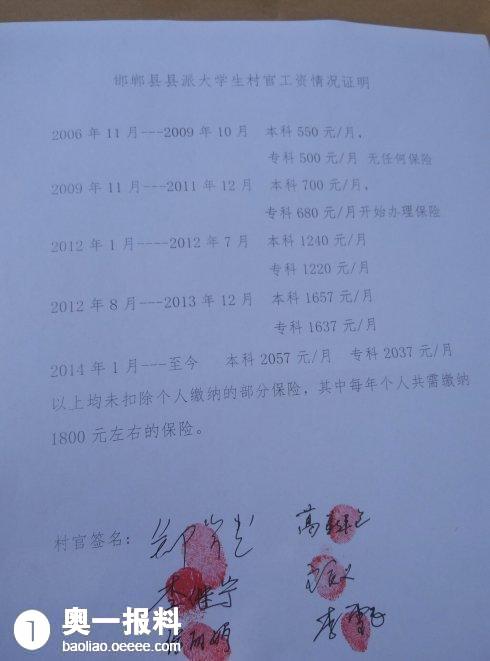 邯郸县县派大学生村官工资情况证明
2006 年 11 月---2009 年 10 月 本科 550 元/月,
专科 500 元/月 无任何保险
2009 年 11 月---2011 年 12 月 本科 700 元/月,
专科 680 元/月开始办理保险
2012 年 1 月----2012 年 7 月 本科 1240 元/月
专科 1220 元/月
2012 年 8 月---2013 年 12 月 本科 1657 元/月
专科 1637 元/月
2014 年 1 月---至今 本科 2057 元/月 专科 2037 元/月
以上均未扣除个人缴纳的部分保险，其中每年个人共需缴纳
1800 元左右的保险。
村官签名：
1 奥一报料
baoliao.oeeee.com